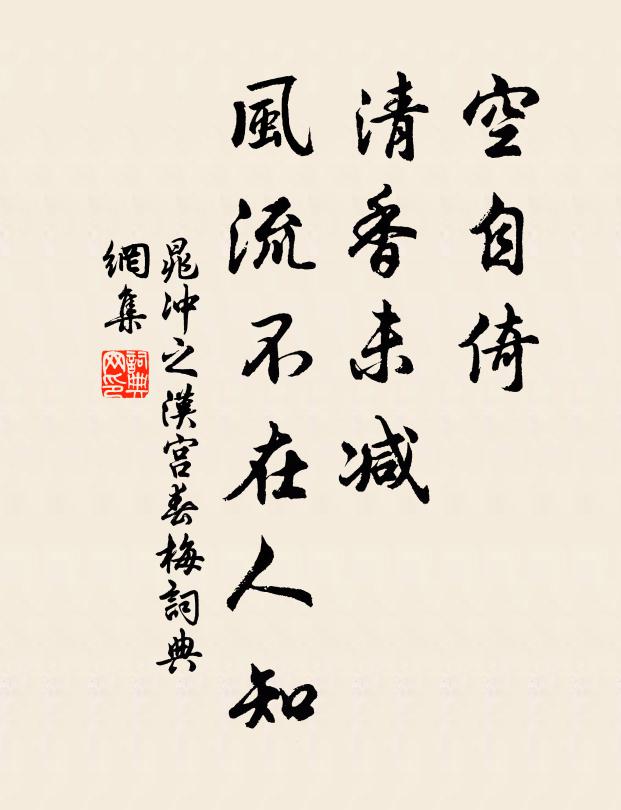 空自倚
清香未減
風流不在人知
晁沖之漢宮春梅詞典
網集
詞典
网印